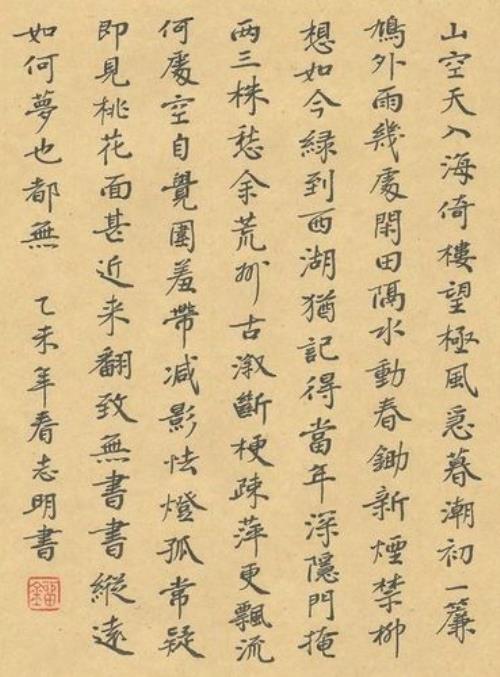 山空天入海倚樓望極風急暮潮初一簾
鳩外雨幾處閑田隔水動春鋤新煙禁柳
想如今緑到西湖猶記得當年深隱門掩
两三株愁余荒州古漵斷梗疎萍更飄流
何處空自覺圍羞帶減影怯燈孤常疑
即見桃花面甚近来翻致無書書縱遠
如何夢也都無 乙未年春志明書